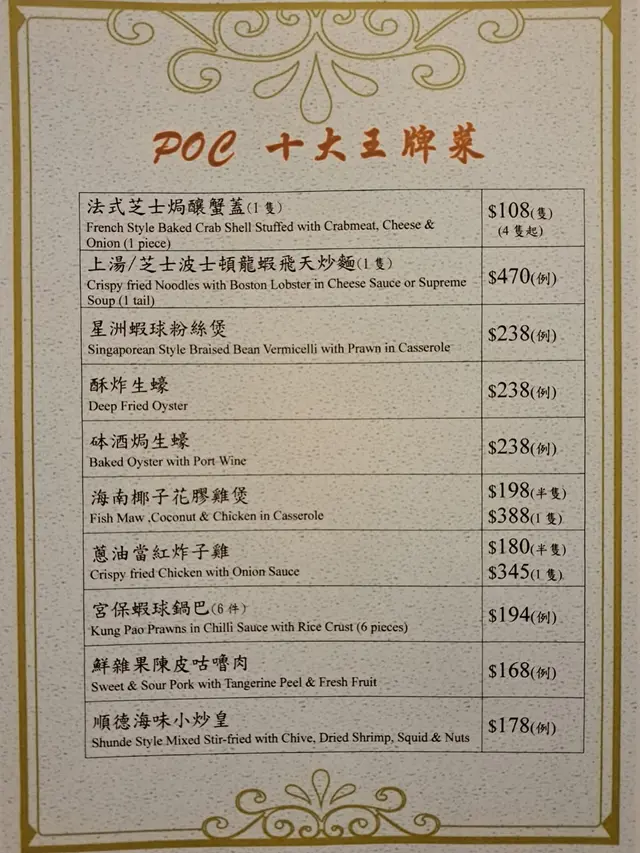 POC 十大王牌菜
法式芝士焗釀蟹蓋(1 隻)
French Style Baked Crab Shell Stuffed with Crabmeat, Cheese &
Onion (1 piece)
$108(隻)
(4 隻起)
上湯/芝士波士頓龍蝦飛天炒麵(1 隻)
Crispy fried Noodles with Boston Lobster in Cheese Sauce or Supreme
Soup (1 tail)
$470(例)
星洲蝦球粉絲煲
Singaporean Style Braised Bean Vermicelli with Prawn in Casserole
$238(例)
酥炸生蠔
Deep Fried Oyster
$238(例)
砵酒焗生蠔
Baked Oyster with Port Wine
$238(例)
海南椰子花膠雞煲
Fish Maw ,Coconut & Chicken in Casserole
$198(半隻)
$388(1 隻)
蔥油當紅炸子雞
Crispy fried Chicken with Onion Sauce
$180(半隻)
$345(1 隻)
宮保蝦球鍋巴(6 件)
Kung Pao Prawns in Chilli Sauce with Rice Crust (6 pieces)
$194(例)
鮮雜果陳皮咕嚕肉
Sweet & Sour Pork with Tangerine Peel & Fresh Fruit
$168(例)
順德海味小炒皇
Shunde Style Mixed Stir-fried with Chive, Dried Shrimp, Squid & Nuts
$178(例)